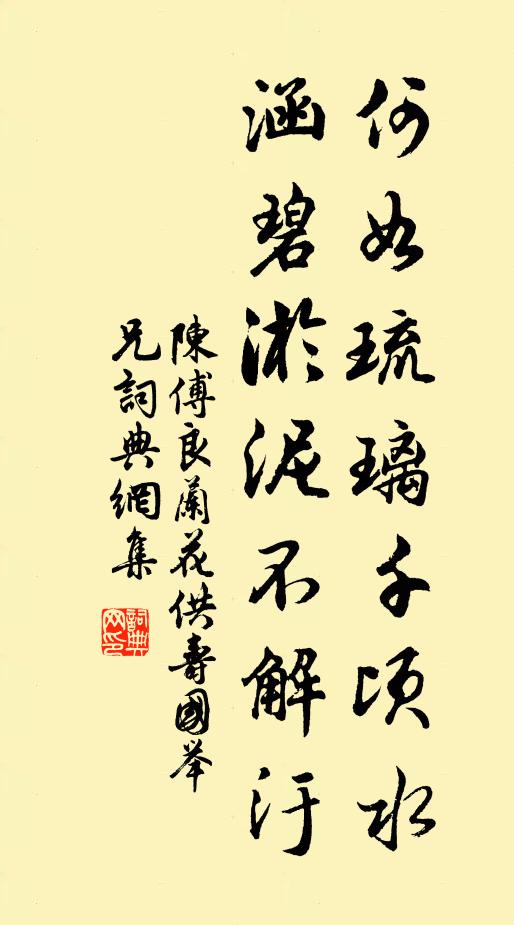 何如琉璃千頃水
涵碧淤泥不解汙
陳傅良蘭花供壽國舉
兄詞典網集
詞典網印